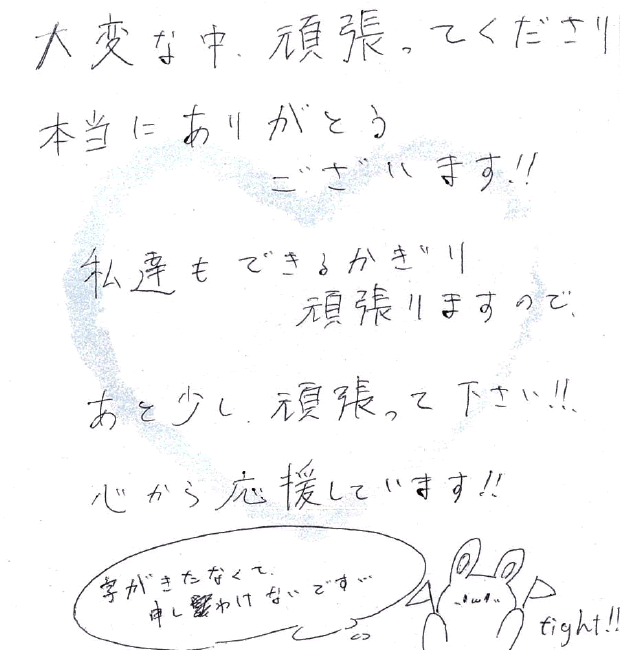 大変な中、頑張ってくださり
本当にありがとう
ございます!!
私達もできるかぎり
頑張りますので、
あと少し、頑張って下さい!!
心から応援しています!!
字がきたなくて、
申し わけないです…
tight!!